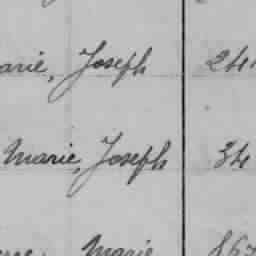 arie, Joseph 24
Marie, Joseph 34
Marie 867